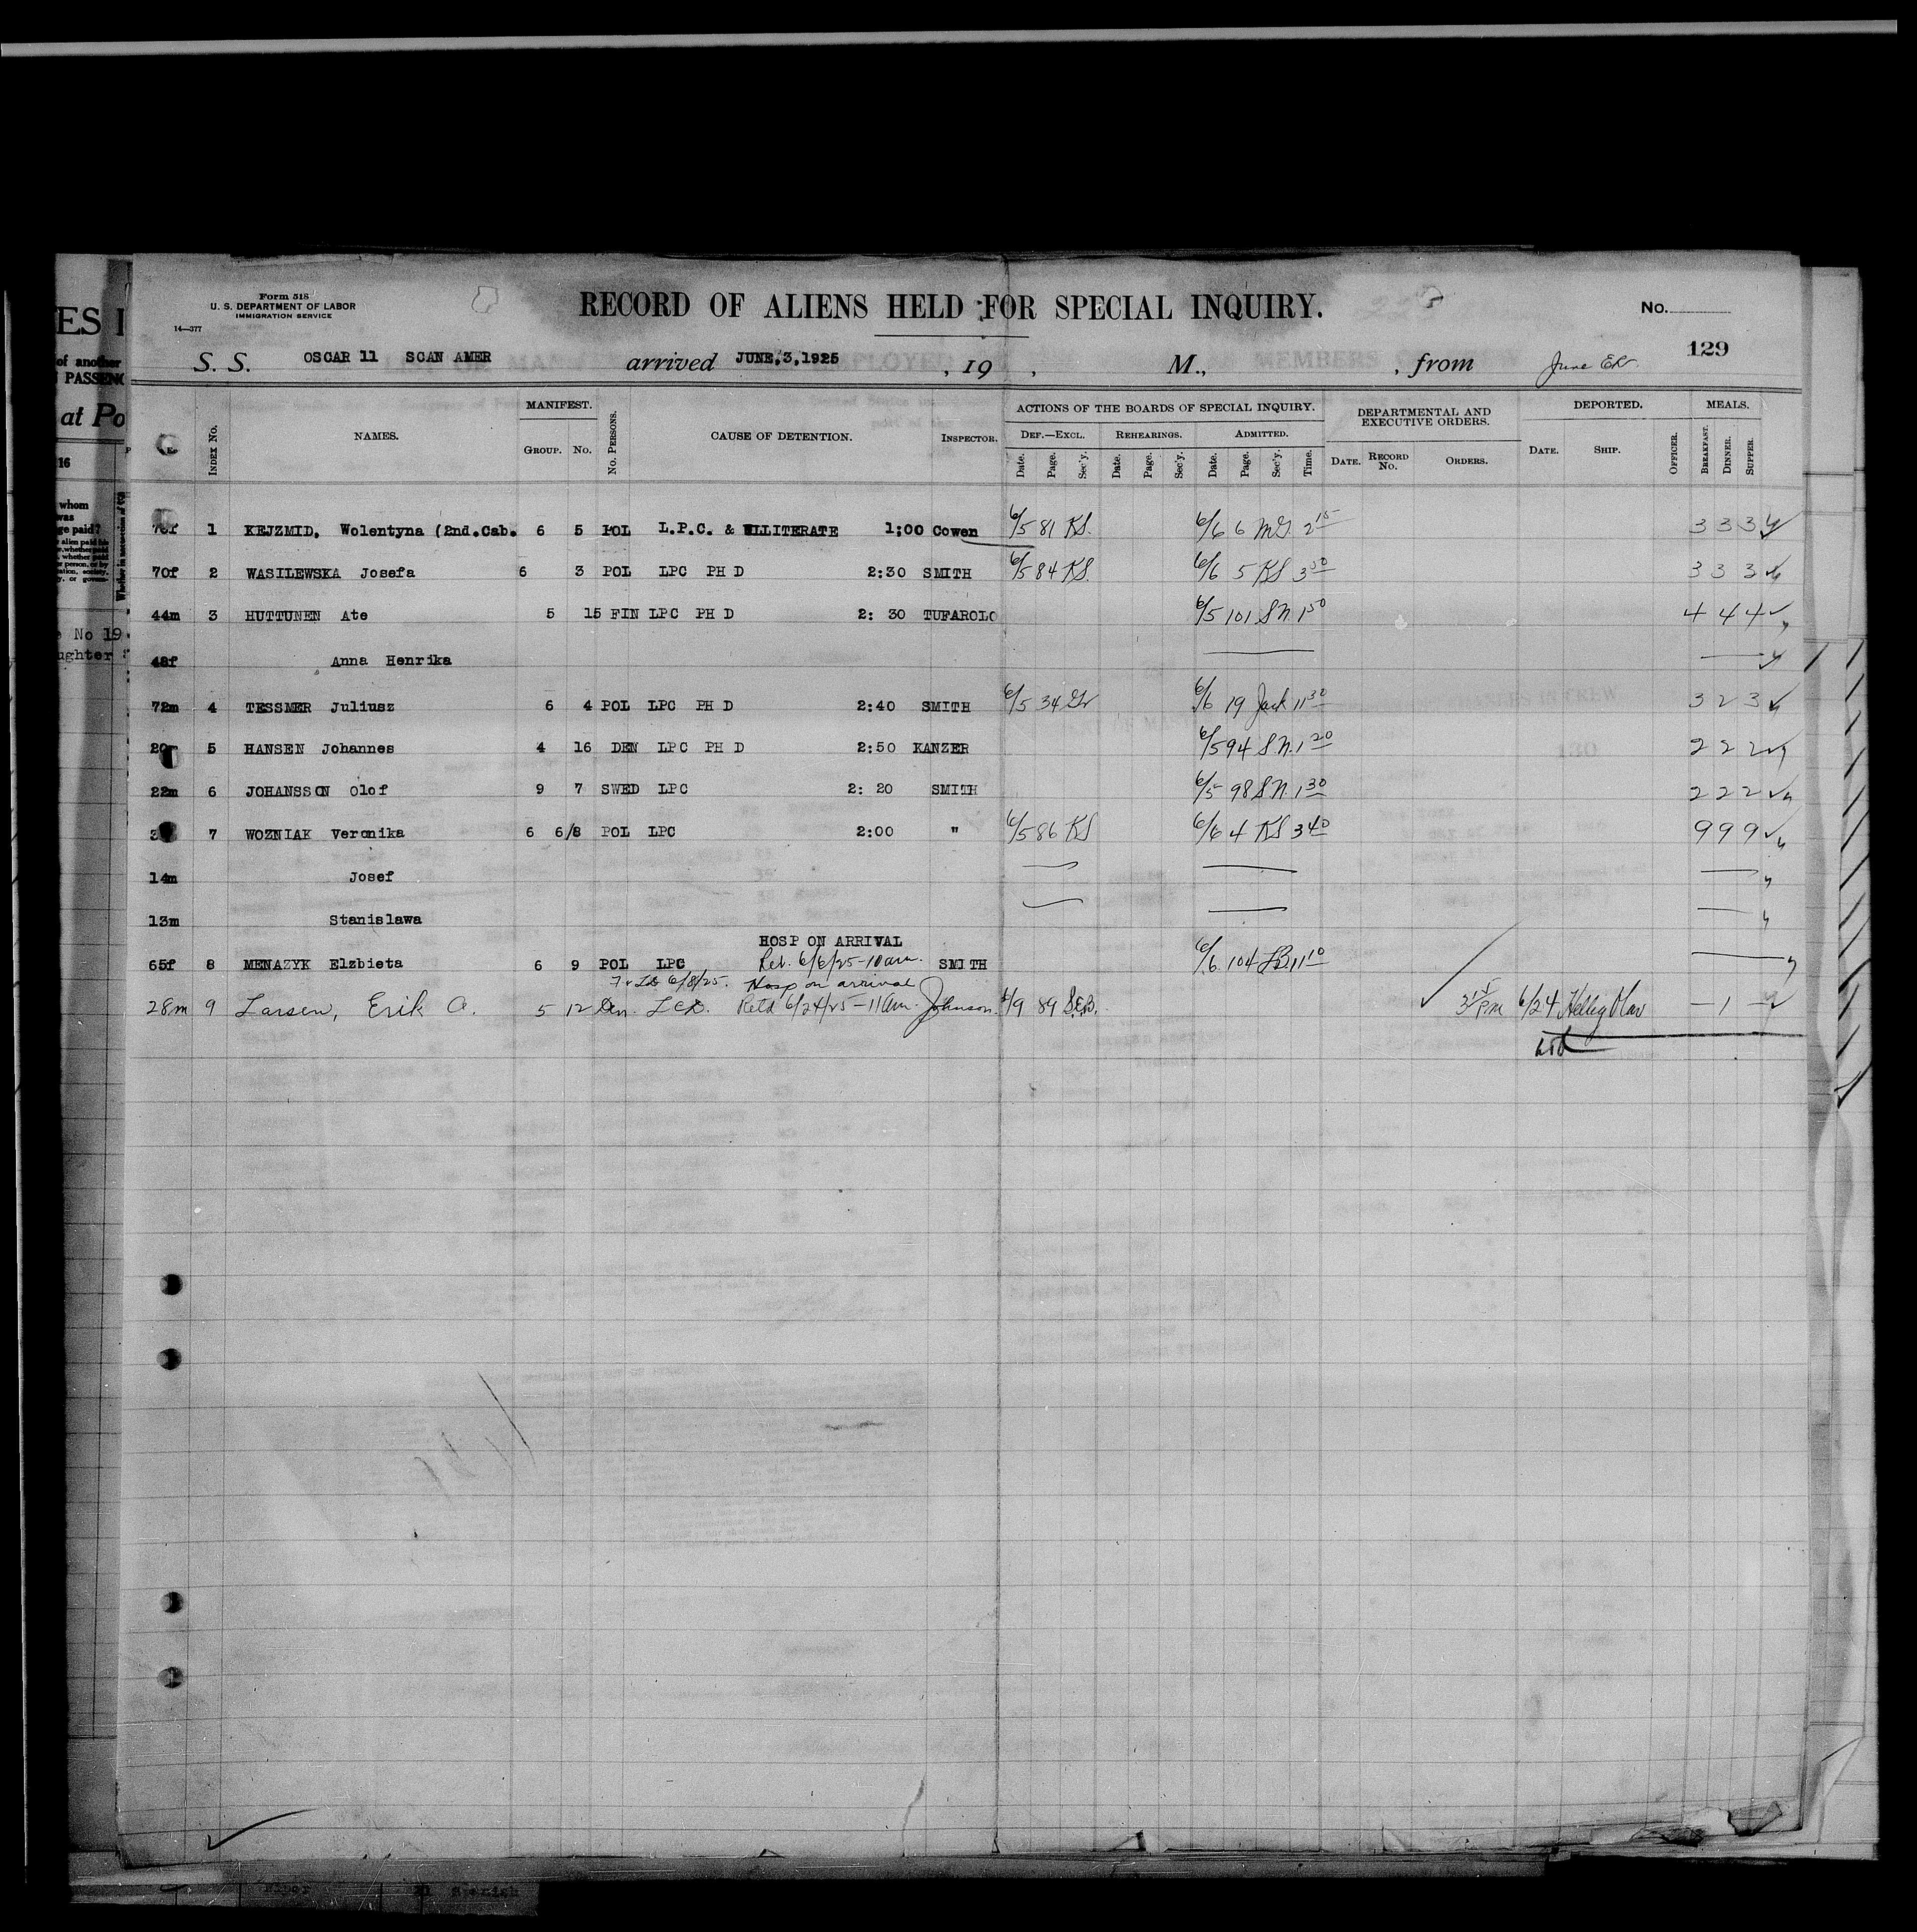 Form 518
U. S. DEPARTMENT OF LABOR
IMMIGRATION SERVICE
14—377
RECORD OF ALIENS HELD FOR SPECIAL INQUIRY.
No.
129
S. S. OSCAR 11 SCAN AMER arrived JUNE,3,1925 , 19 , M., , from June
MANIFEST. ACTIONS OF THE BOARDS OF SPECIAL INQUIRY. DEPARTMENTAL AND EXECUTIVE ORDERS. DEPORTED. MEALS.
INDEX NO. NAMES. GROUP. NO. NO. PERSONS. CAUSE OF DETENTION. INSPECTOR. DEF.—EXCL. REHEARINGS. ADMITTED.
Date. Page. Sec'y. Date. Page. Sec'y. Date. Page. Sec'y. Time. DATE. RECORD NO. ORDERS. DATE. SHIP. OFFICER. BREAKFAST. DINNER. SUPPER.
1 KEJZMID, Wolentyna (2nd.Cab. 6 5 POL L.P.C. & ILLITERATE 1;00 Cowen 6/5 81 KS. 6/6 6 McG. 2 15 3 3 3
70f 2 WASILEWSKA Josefa 6 3 POL LPC PH D 2:30 SMITH 6/5 84 KS. 6/6 5 KS 3 50 3 3 3
44m 3 HUTTUNEN Ate 5 15 FIN LPC PH D 2: 30 TUFAROLO 6/5 101 S N. 1 50 4 4 4
48f Anna Henrika
72m 4 TESSMER Juliusz 6 4 POL LPC PH D 2:40 SMITH 6/5 34 6/6 19 Jack 11 30 3 2 3
5 HANSEN Johannes 4 16 DEN LPC PH D 2:50 KANZER 6/5 94 S.N. 1 20 2 2 2
22m 6 JOHANSSON Olof 9 7 SWED LPC 2: 20 SMITH 6/5 98 S N 1 30 2 2 2
7 WOZNIAK Veronika 6 6/8 POL LPC 2:00 " 6/5 86 KS 6/6 4 KS 3 40 9 9 9
14m Josef
13m Stanislawa
HOSP ON ARRIVAL
65f 8 MENAZYK Elzbieta 6 9 POL LPC Rel. 6/6/25-10 am. SMITH 6/6 104 11 10
6/8/25. Hosp on arrival
28m 9 Larsen, Erik A. 5 12 Den. LCD. Retd 6/24/25-11 am. Johnson 6/9 89 S.E.B. PM 6/24 Hellig Olav — 1 —